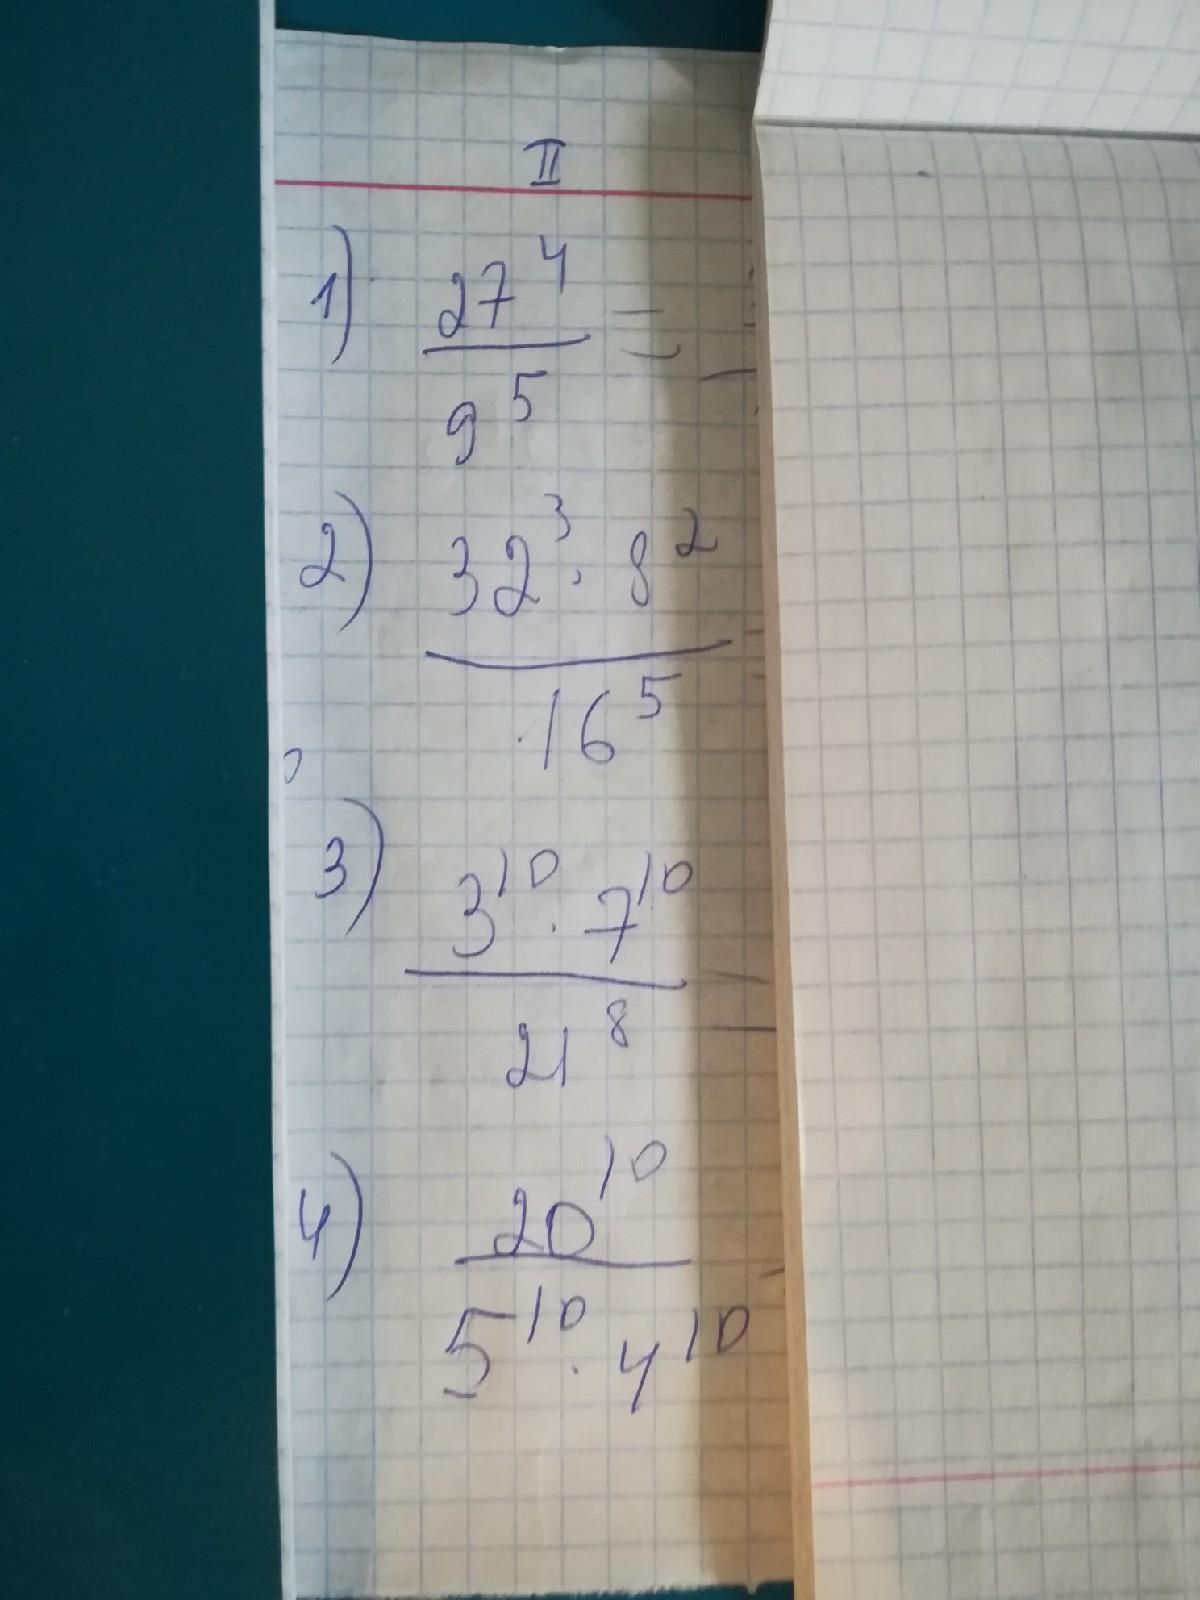 II
1) 27^4 / 9^5 =
2) 32^3 · 8^2 / 16^5 =
3) 3^10 · 7^10 / 21^8 =
4) 20^10 / 5^10 · 4^10